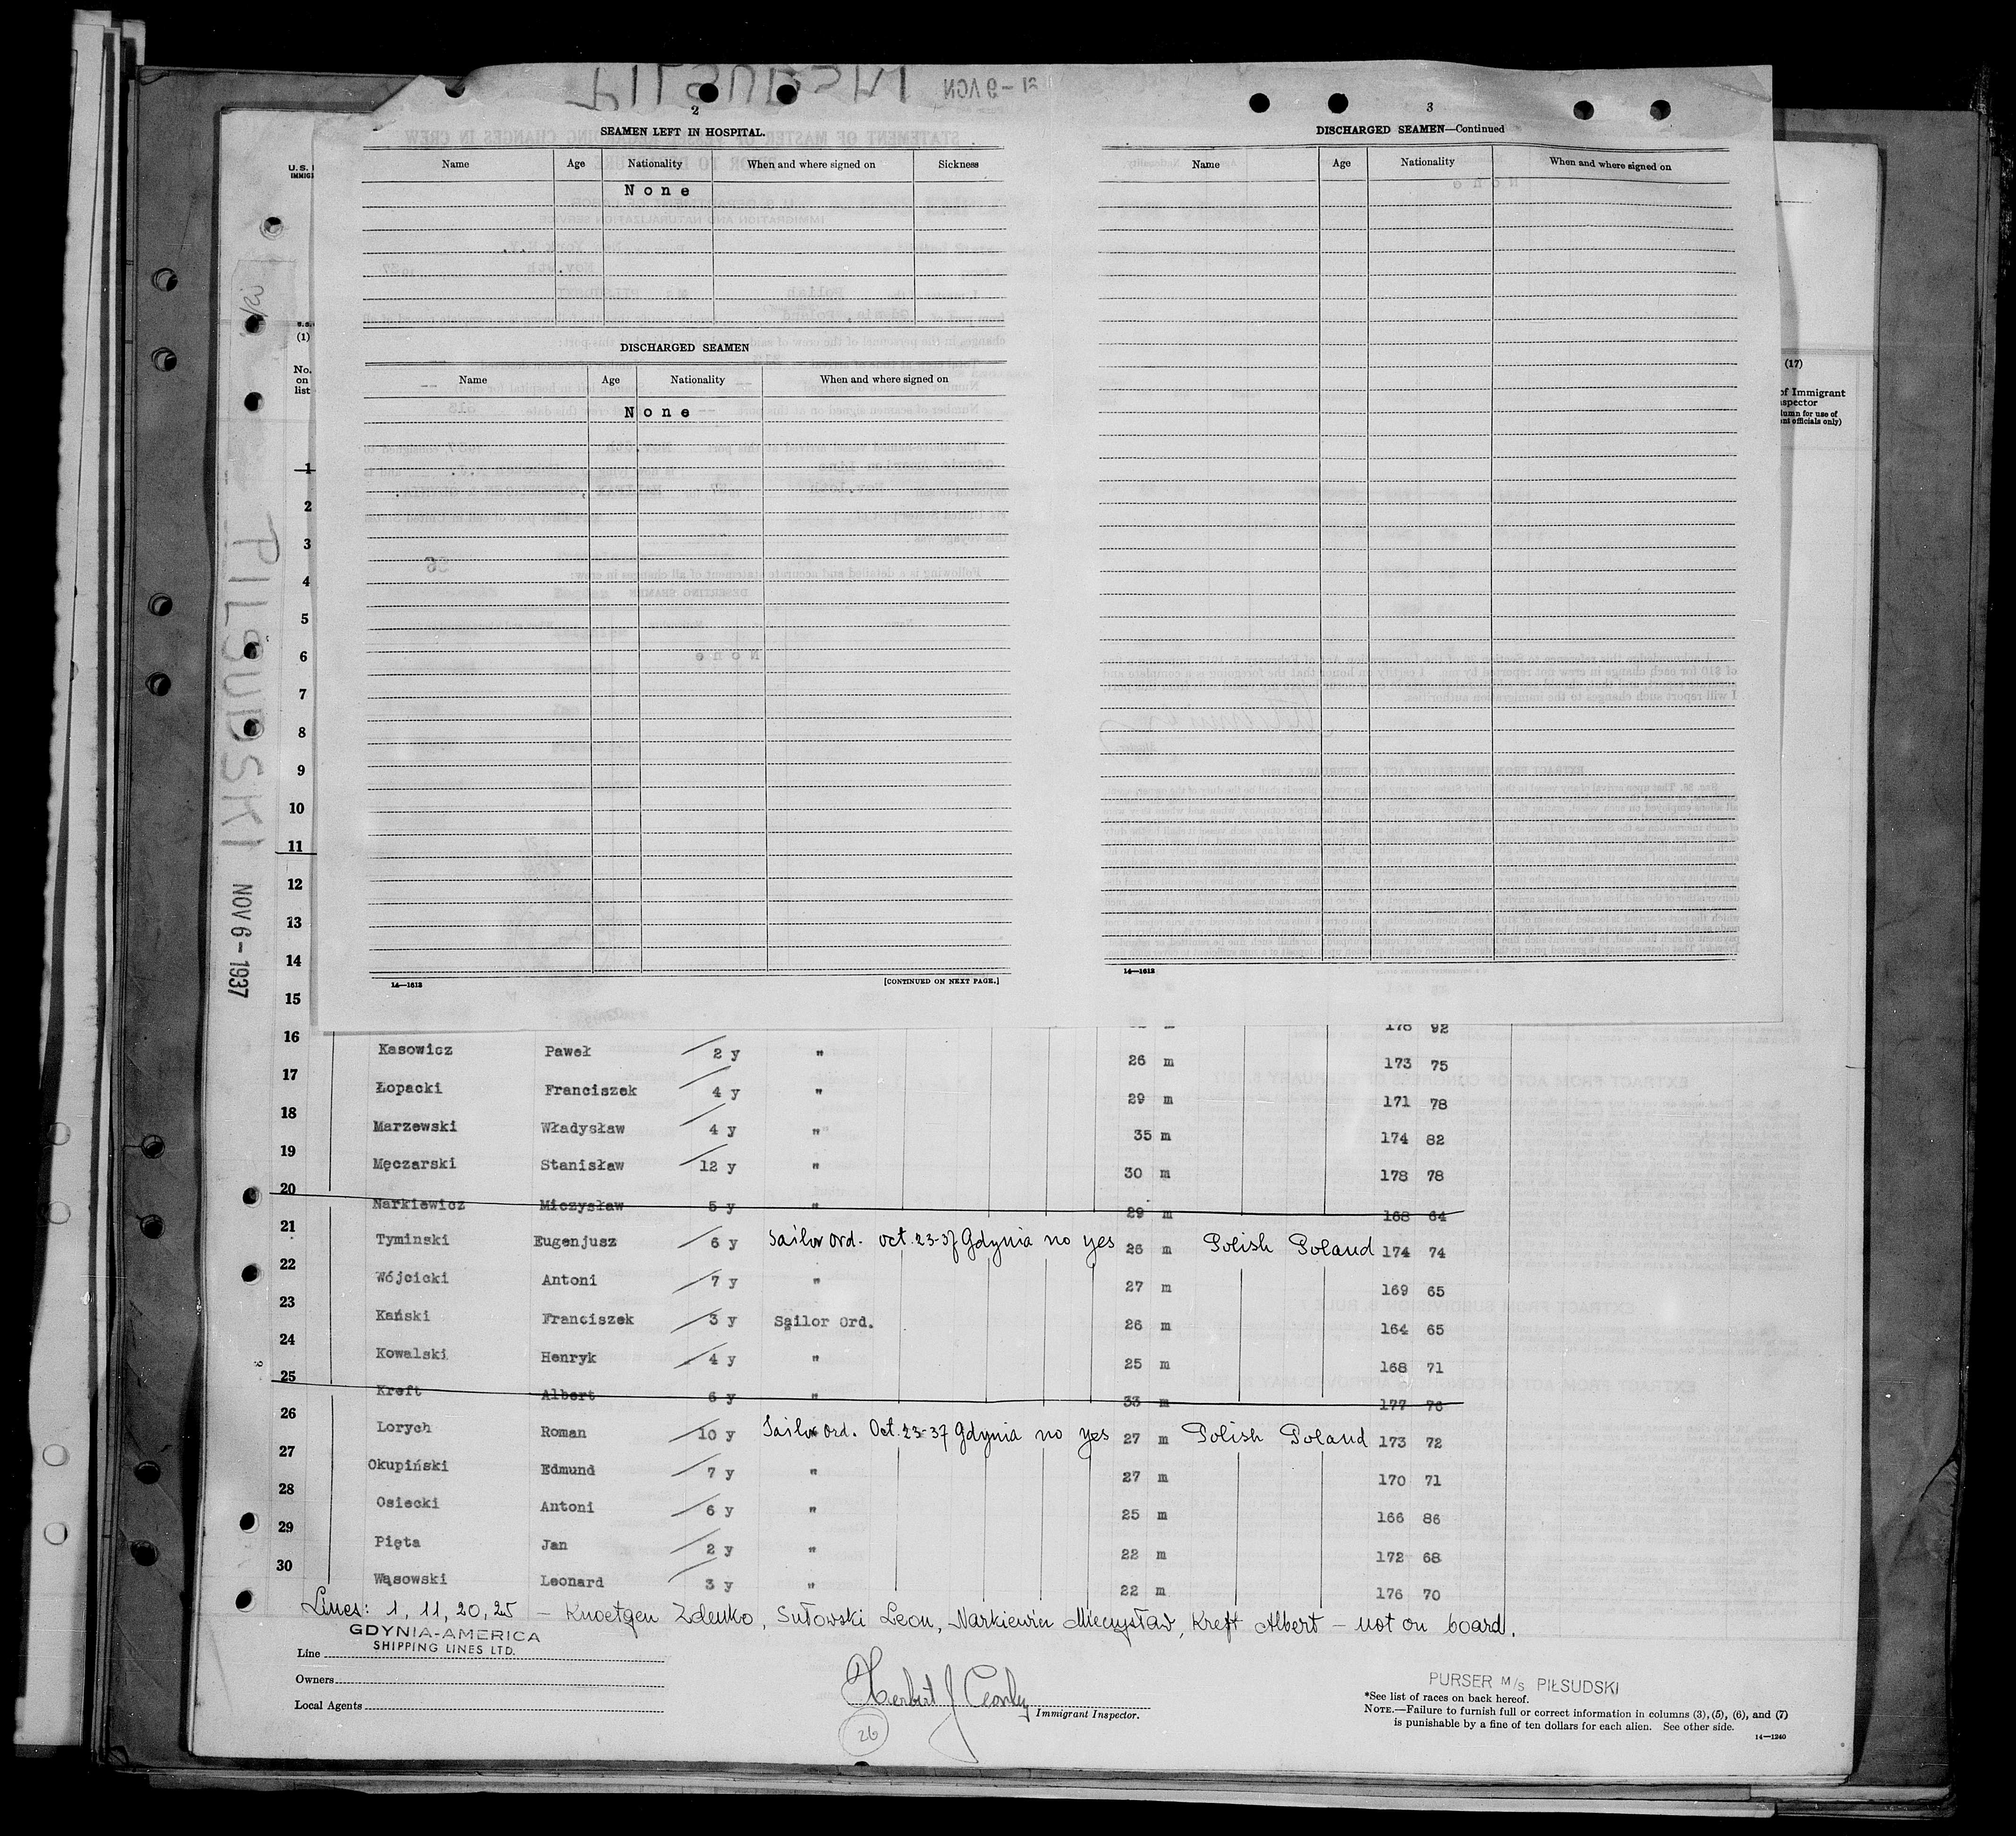 2
SEAMEN LEFT IN HOSPITAL.
Name Age Nationality When and where signed on Sickness
None
DISCHARGED SEAMEN
Name Age Nationality When and where signed on
None
14—1613 [CONTINUED ON NEXT PAGE.]
3
DISCHARGED SEAMEN—Continued
Name Age Nationality When and where signed on
14—1613
U. S.
(1)
No. on list
(17)
of Immigrant
lumn for use of
officials only)
PILSUDSKI
NOV 6 - 1937
1
2
3
4
5
6
7
8
9
10
11
12
13
14
15
178 92
16 Kasowicz Paweł 2 y " 26 m 173 75
17 Łopacki Franciszek 4 y " 29 m 171 78
18 Marzewski Władysław 4 y " 35 m 174 82
19 Męczarski Stanisław 12 y " 30 m 178 78
20 Narkiewicz Mieczysław 5 y " 29 m 168 64
21 Tyminski Eugenjusz 6 y Sailor Ord. Oct. 23-37 Gdynia no yes 26 m Polish Poland 174 74
22 Wójcicki Antoni 7 y " 27 m 169 65
23 Kański Franciszek 3 y Sailor Ord. 26 m 164 65
24 Kowalski Henryk 4 y " 25 m 168 71
25 Kreft Albert 6 y " 33 m 177 76
26 Lorych Roman 10 y Sailor Ord. Oct. 23-37 Gdynia no yes 27 m Polish Poland 173 72
27 Okupiński Edmund 7 y " 27 m 170 71
28 Osiecki Antoni 6 y " 25 m 166 86
29 Pięta Jan 2 y " 22 m 172 68
30 Wąsowski Leonard 3 y " 22 m 176 70
Lines: 1, 11, 20, 25 – Knoetgen Zdenko, Sutowski Leon, Narkiewicz Mieczysław, Kreft Albert – not on board.
GDYNIA-AMERICA
SHIPPING LINES LTD.
Line
Owners
Local Agents
Herbert J
Immigrant Inspector.
26
PURSER M/S PIŁSUDSKI
*See list of races on back hereof.
NOTE.—Failure to furnish full or correct information in columns (3), (5), (6), and (7)
is punishable by a fine of ten dollars for each alien. See other side.
14—1240